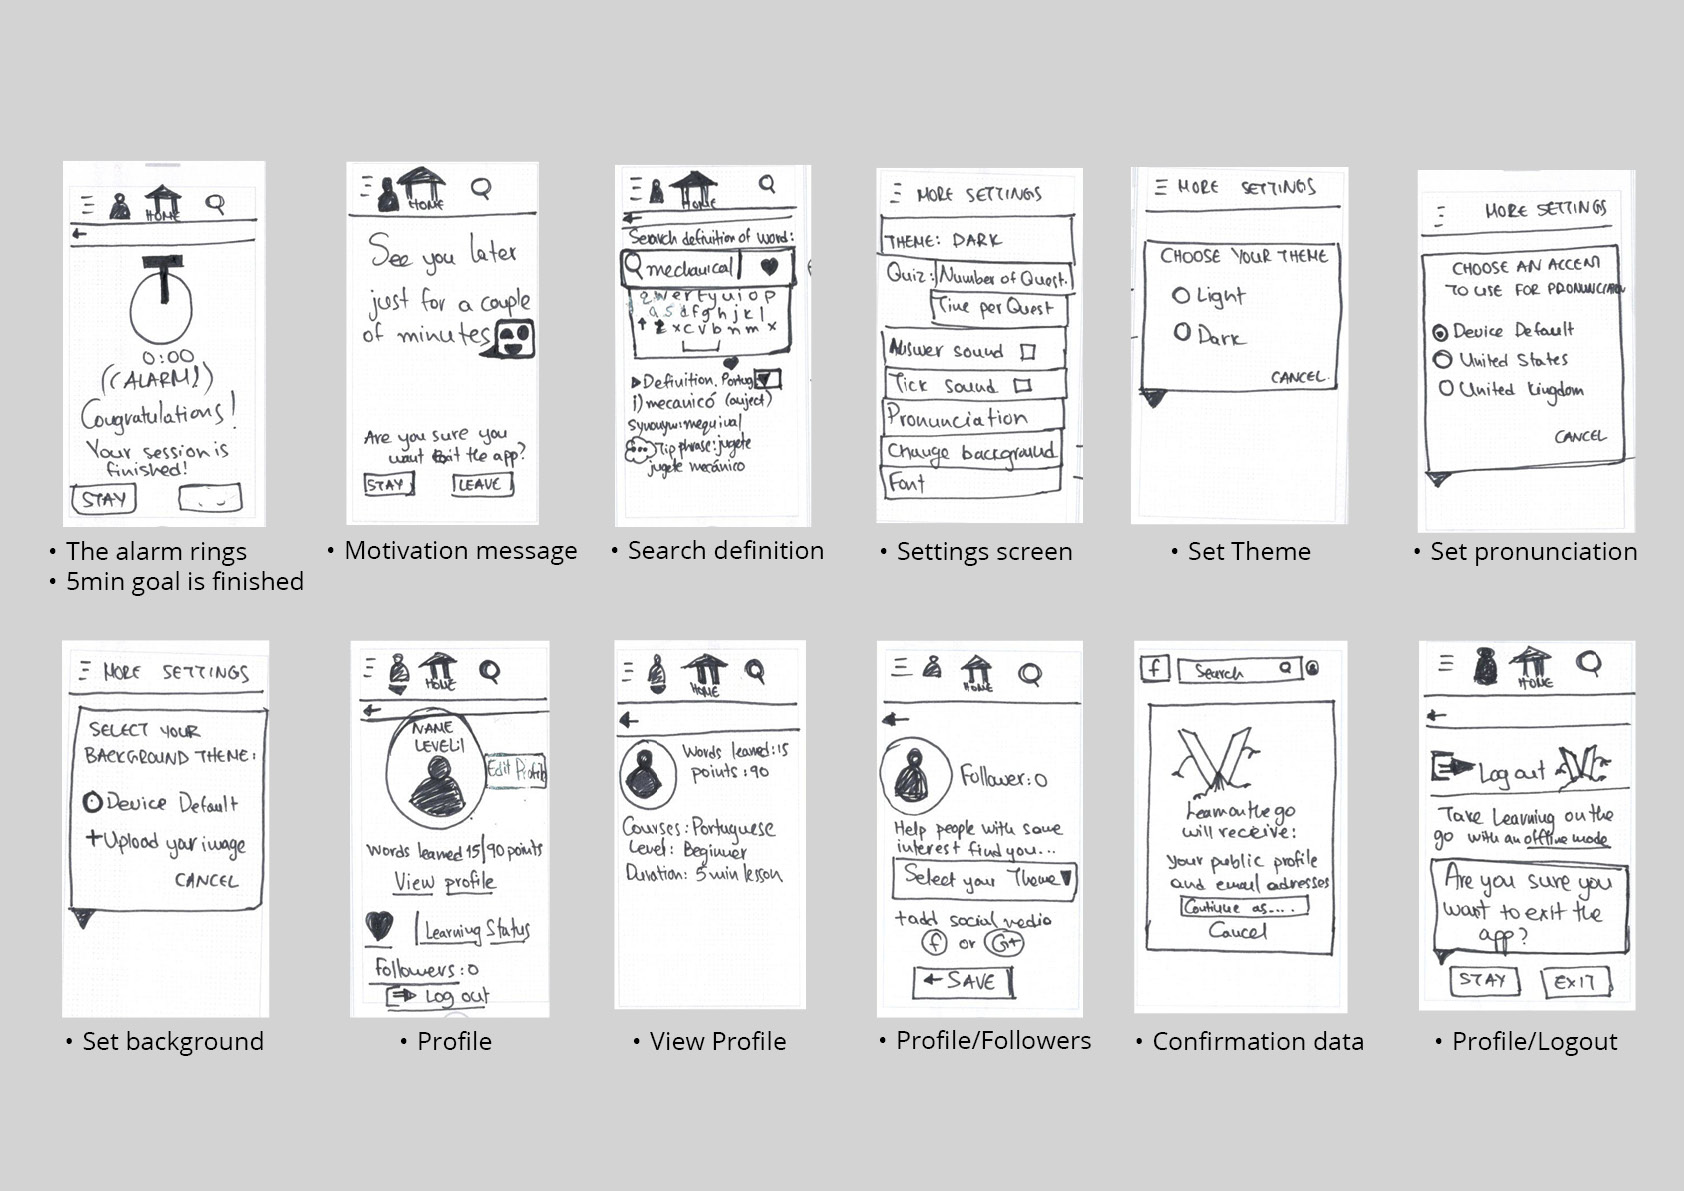 HOME
0:00
((ALARM))
Congratulations!
Your session is
finished!
STAY
• The alarm rings
• 5min goal is finished
HOME
See you later
just for a couple
of minutes
Are you sure you
want exit the app?
STAY LEAVE
• Motivation message
HOME
Search definition of word:
mechanical
qwertyuiop
asdfghjkl
zxcvbnm x
Definition. Portug
1) mecanicó (auject)
synonym: mequival
Tip phrase: jugete
jugete mecánico
• Search definition
MORE SETTINGS
THEME: DARK
Quiz: Number of Quest.
Time per Quest
Answer sound
Tick sound
Pronunciation
Change background
Font
• Settings screen
MORE SETTINGS
CHOOSE YOUR THEME
Light
Dark
CANCEL.
• Set Theme
MORE SETTINGS
CHOOSE AN ACCENT
TO USE FOR PRONUNCIATION
Device Default
United States
United Kingdom
CANCEL
• Set pronunciation
MORE SETTINGS
SELECT YOUR
BACKGROUND THEME:
Device Default
+Upload your image
CANCEL
• Set background
HOME
NAME
LEVEL:1
Edit Profile
words learned 15/90 points
View profile
Learning Status
Followers: 0
Log out
• Profile
HOME
Words learned: 15
points: 90
Courses: Portuguese
Level: Beginner
Duration: 5 min lesson
• View Profile
HOME
Follower: 0
Help people with same
interest find you...
Select your Theme
+add social media
f or G+
SAVE
• Profile/Followers
f Search
Learn on the go
will receive:
your public profile
and email adresses
Continue as....
Cancel
• Confirmation data
HOME
Log out
Take Learning on the
go with an offline mode
Are you sure you
want to exit the
app?
STAY EXIT
• Profile/Logout